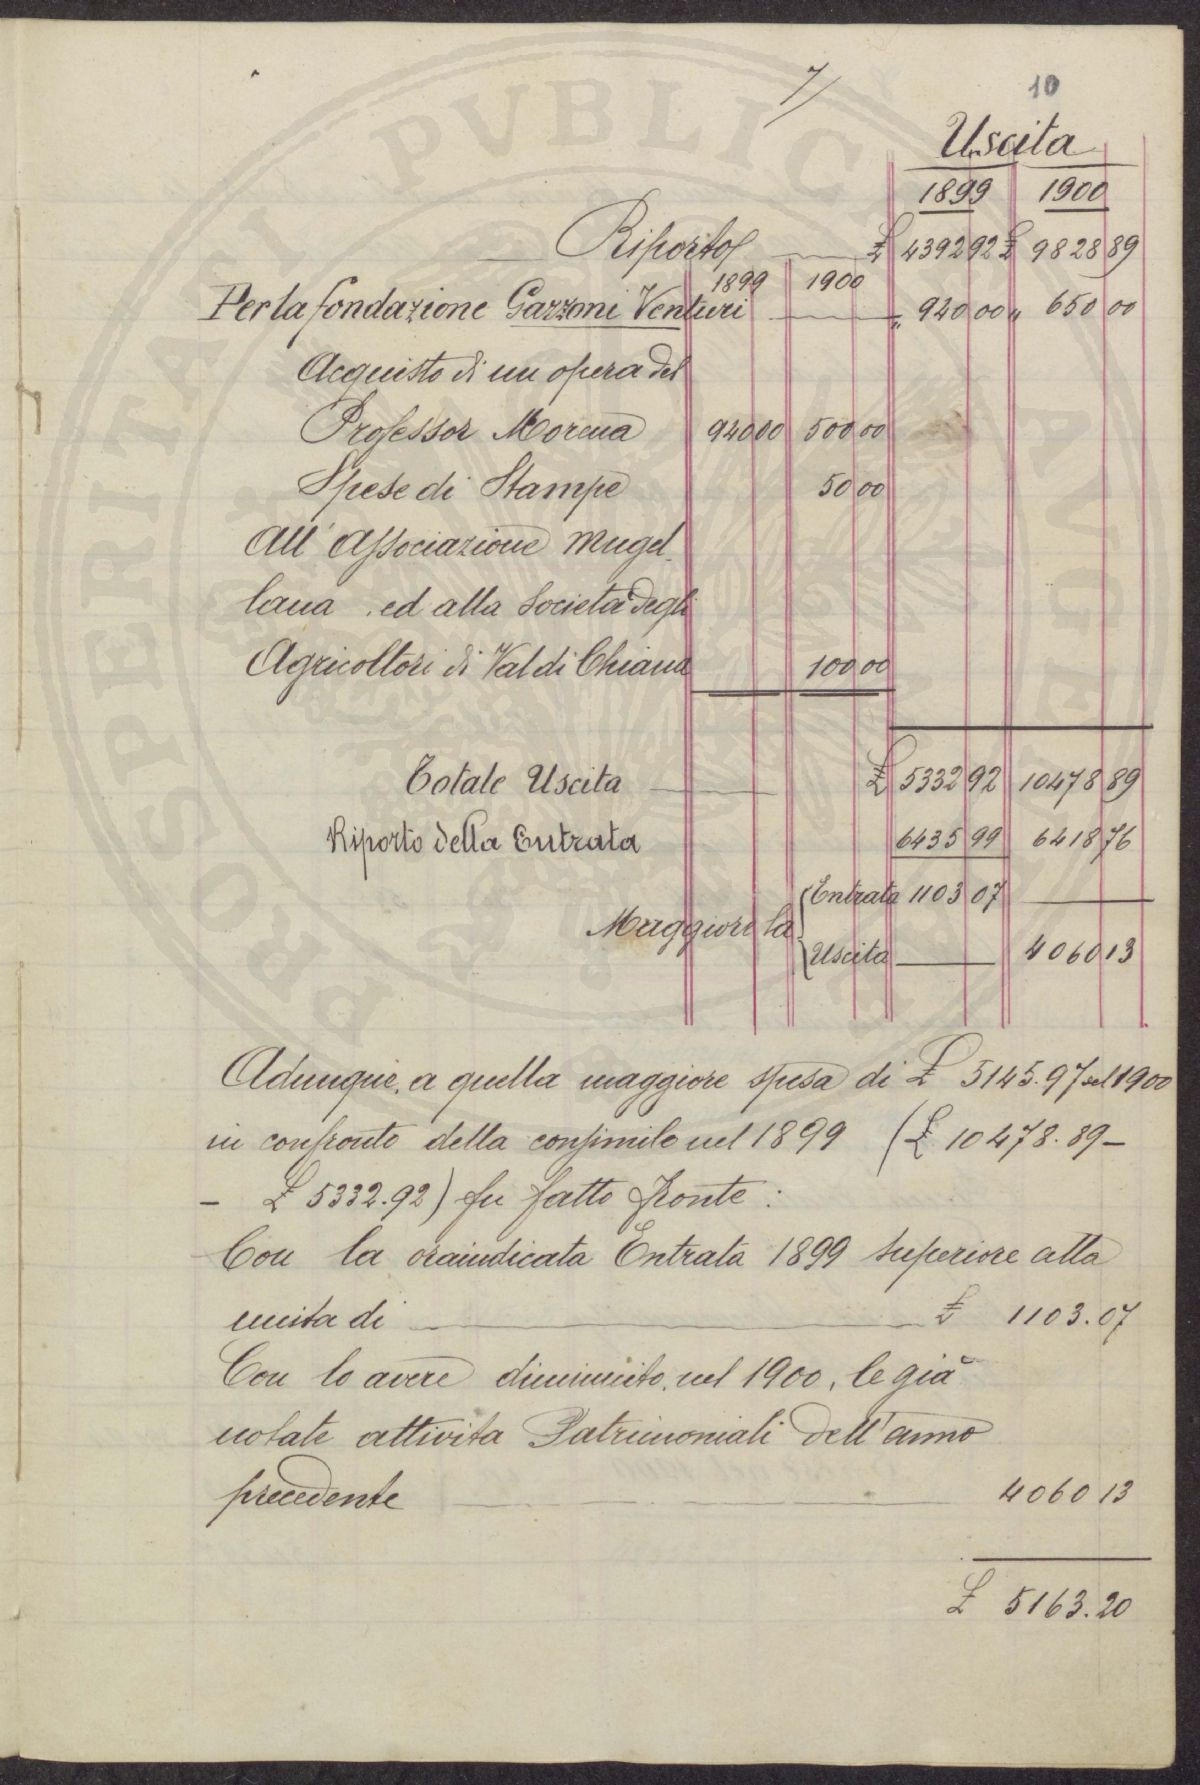 7/
10
Uscita
1899 1900
Riporto £ 4392 92 £ 9828 89
1899 1900
Per la fondazione Gazzoni Venturi " 940 00 " 650 00
Acquisto di un opera del
Professor Morena 940 00 500 00
Spese di Stampe 50 00
All' Associazione Mugel
lana ed alla Società degli
Agricoltori di Val di Chiana 100 00
Totale Uscita £ 5332 92 10478 89
Riporto della Entrata 6435 99 6418 76
Maggiore la { Entrata 1103 07
Uscita 4060 13
Adunque, a quella maggiore spesa di £ 5145.97 nel 1900
in confronto della consimile nel 1899 (£ 10478.89 -
- £ 5332.92) fu fatto fronte:
Con la oraindicata Entrata 1899 superiore alla
uscita di £ 1103.07
Con lo avere diminuito, nel 1900, le già
notate attività Patrimoniali dell'anno
precedente 4060 13
£ 5163.20
PROSPERITATI PVBLICAE